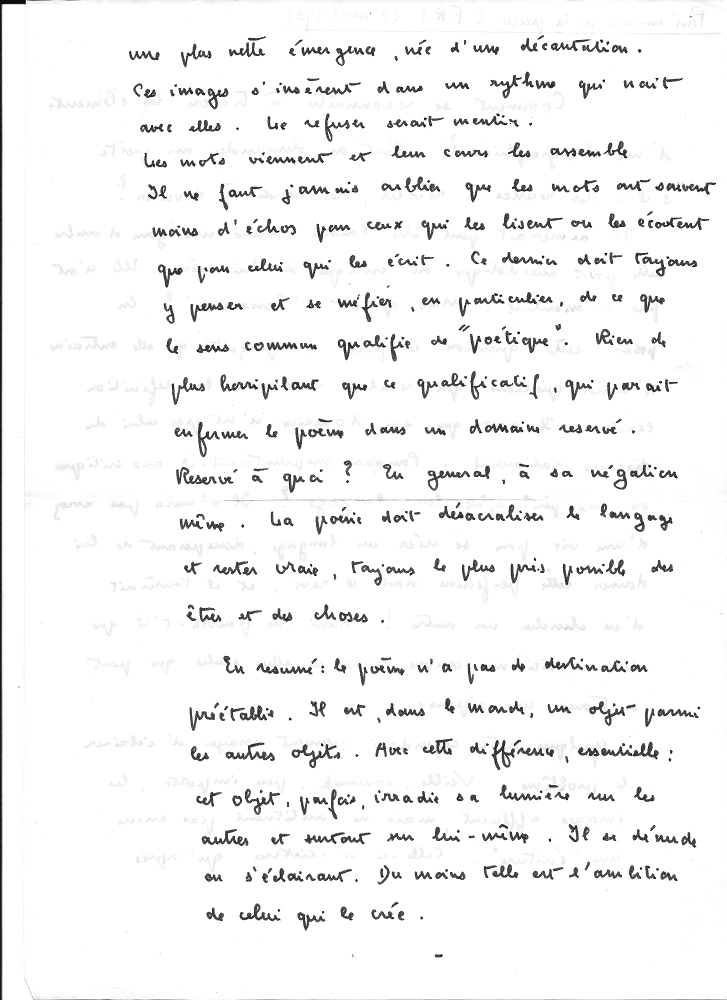 une plus nette émergence, née d'une décantation.
Ces images s'insèrent dans un rythme qui nait
avec elles. Le refuser serait mentir.
Les mots viennent et leur cours les assemble
Il ne faut jamais oublier que les mots ont souvent
moins d'échos pour ceux qui les lisent ou les écoutent
que pour celui qui les écrit. Ce dernier doit toujours
y penser et se méfier, en particulier, de ce que
le sens commun qualifie de "poétique". Rien de
plus horripilant que ce qualificatif, qui parait
enfermer le poème dans un domaine reservé.
Reservé à quoi ? En general, à sa négation
même. La poésie doit désacraliser le langage
et rester vraie, toujours le plus près possible des
êtres et des choses.
En resumé : le poème n'a pas de destination
préétablie. Il est, dans le monde, un objet parmi
les autres objets. Avec cette différence, essentielle :
cet objet, parfois, irradie sa lumière sur les
autres et surtout sur lui-même. Il se dénude
en s'éclairant. Du moins telle est l'ambition
de celui qui le crée.